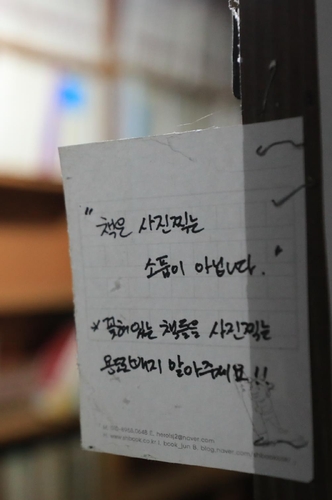 "책은 사진찍는
소품이 아닙니다."
*꽂혀있는 책들을 사진찍는
말아주세요!!